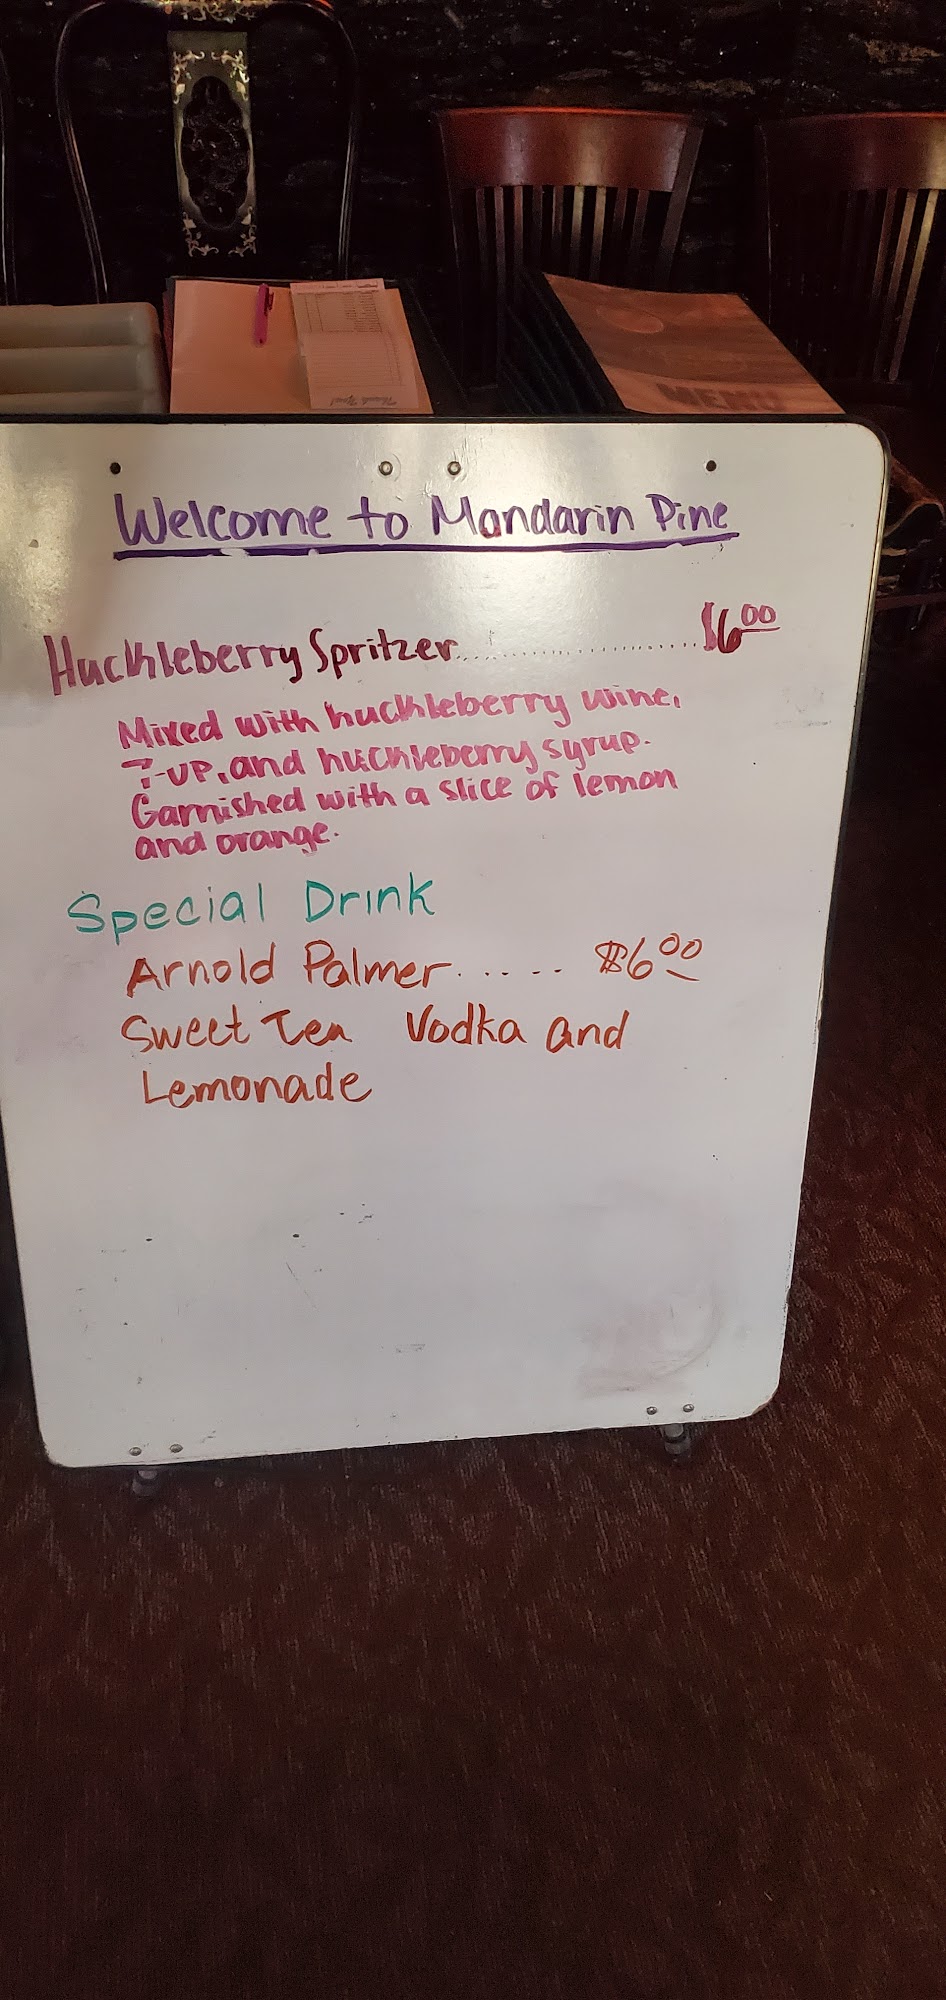 MENU
Thank You!
Welcome to Mandarin Pine
Huckleberry Spritzer..................$6.00
Mixed with huckleberry wine,
7-UP, and huckleberry syrup.
Garnished with a slice of lemon
and orange.
Special Drink
Arnold Palmer..... $6.00
Sweet Tea Vodka and
Lemonade